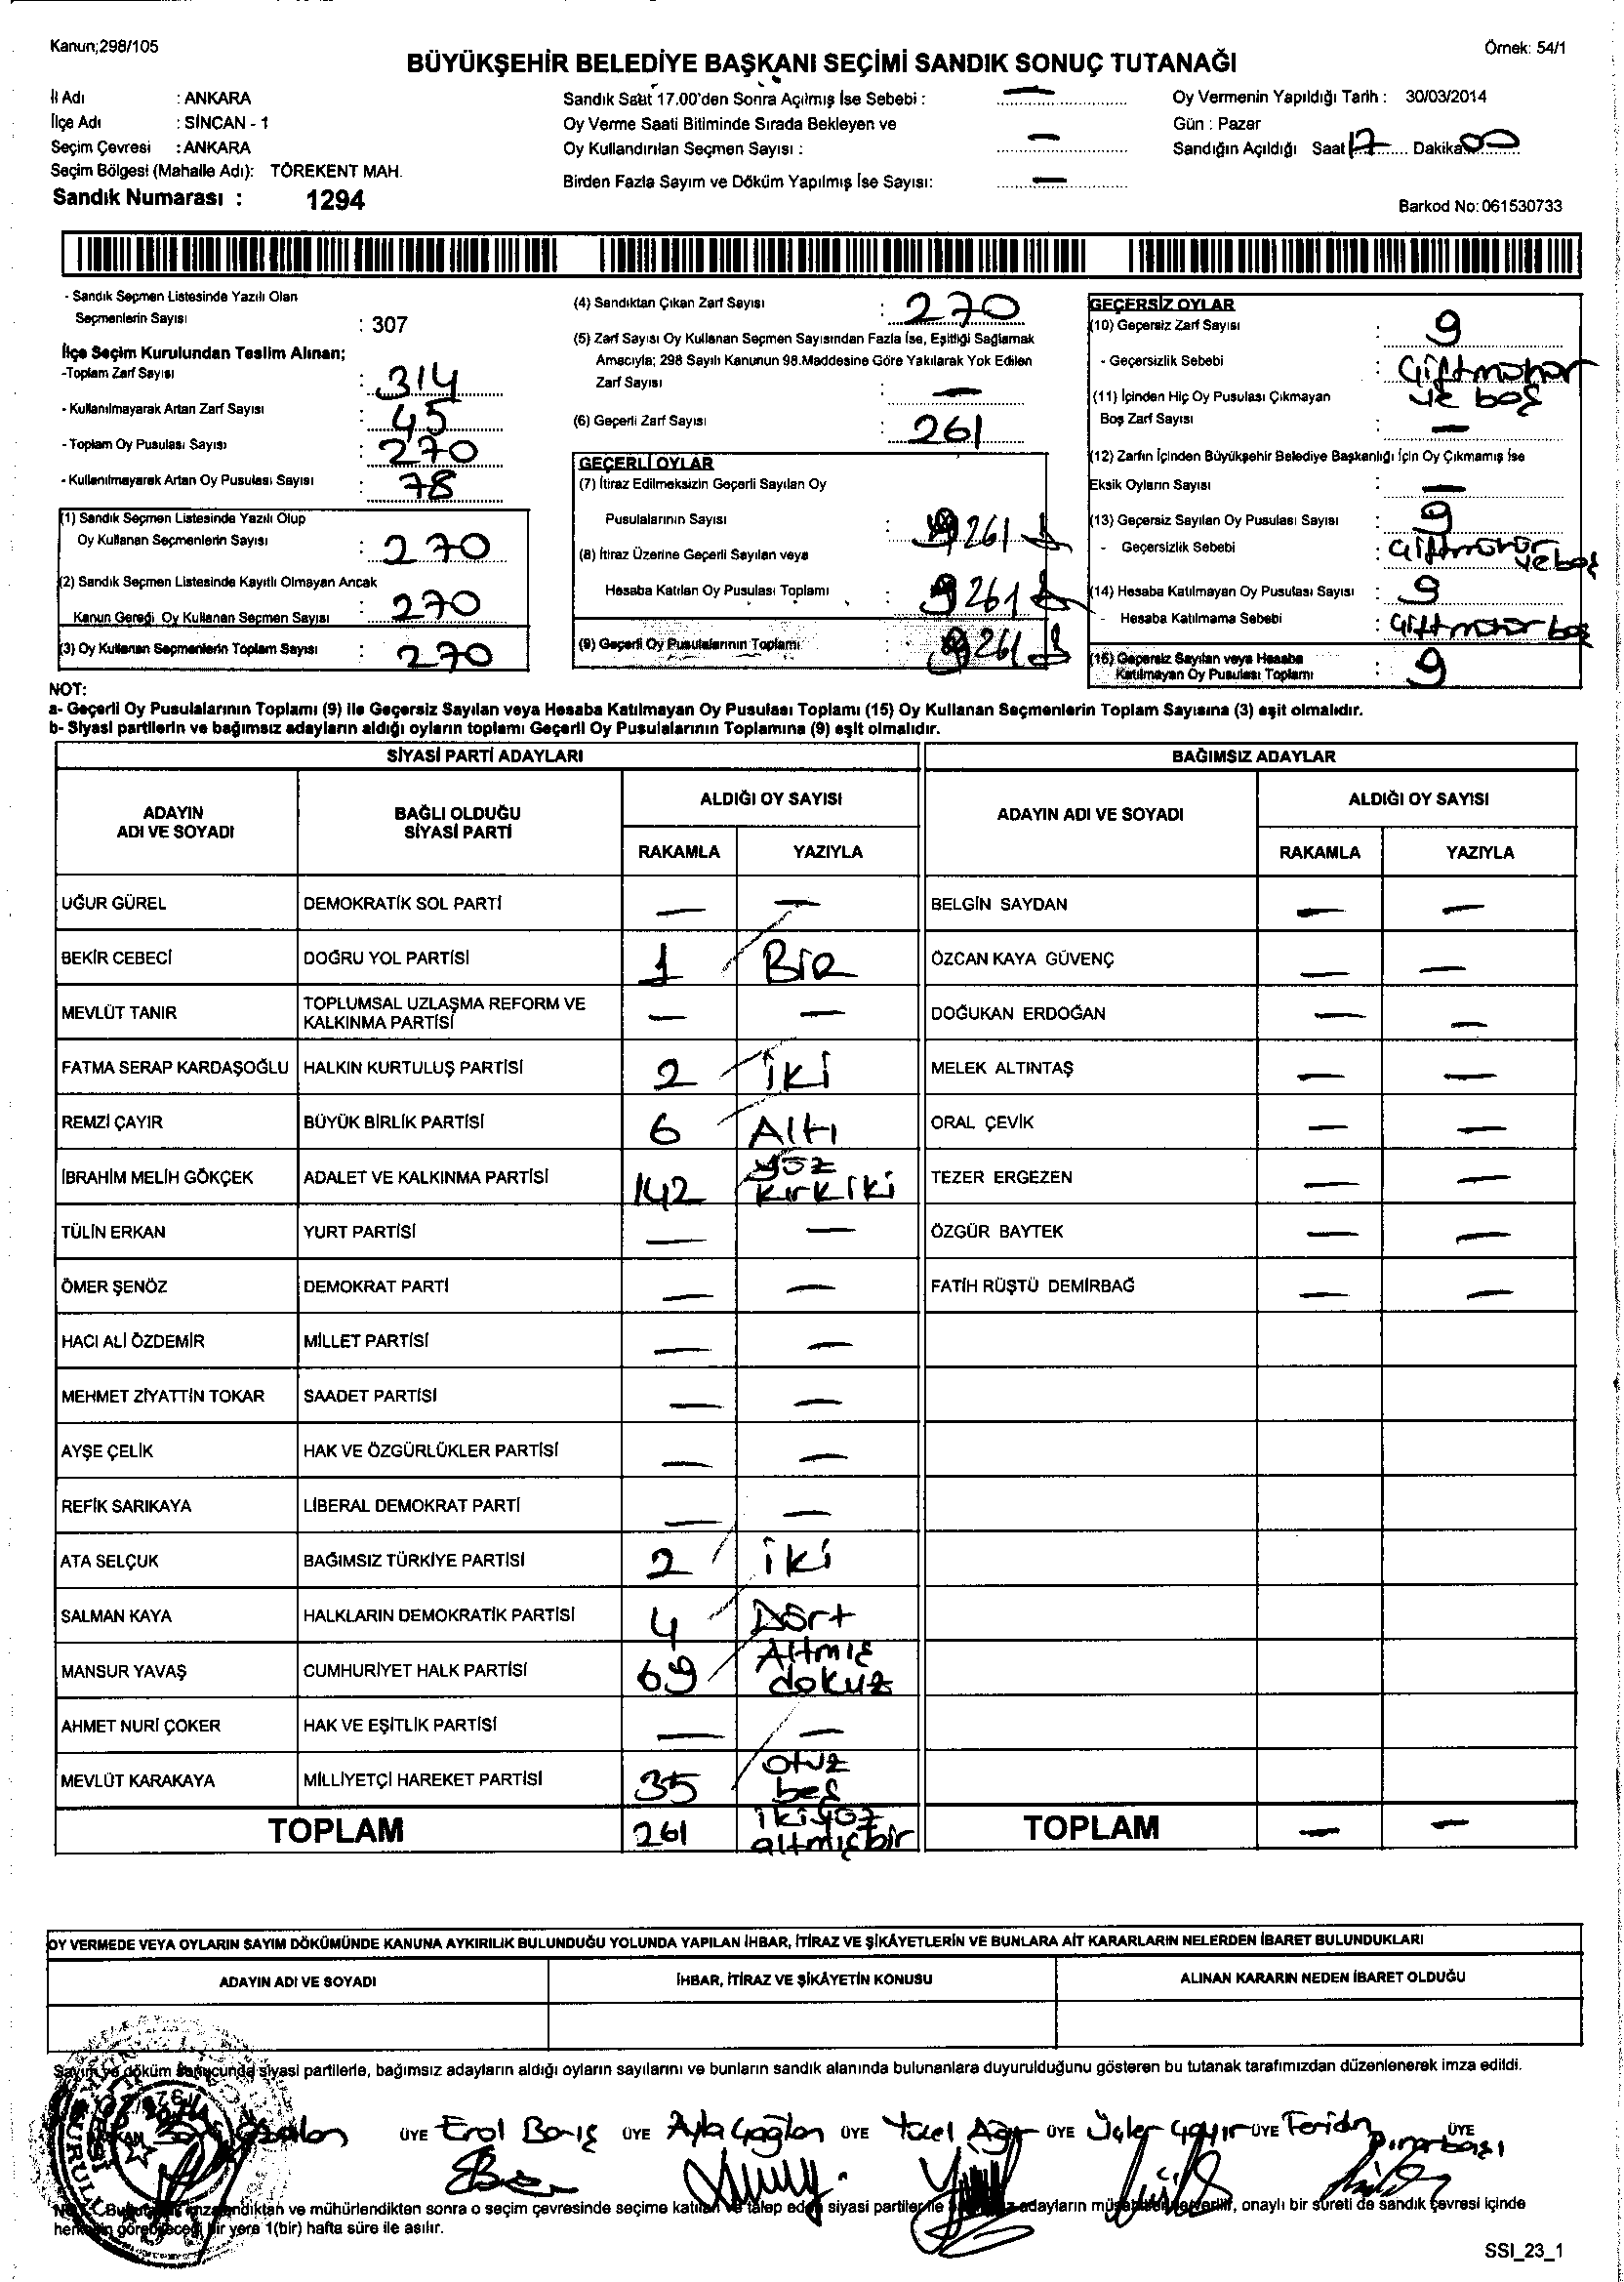 Kanun;298/105
Örnek: 54/1
BÜYÜKŞEHİR BELEDİYE BAŞKANI SEÇİMİ SANDIK SONUÇ TUTANAĞI
İl Adı : ANKARA
İlçe Adı : SİNCAN - 1
Seçim Çevresi : ANKARA
Seçim Bölgesi (Mahalle Adı): TÖREKENT MAH.
Sandık Numarası : 1294
Sandık Saat 17.00'den Sonra Açılmış İse Sebebi : —
Oy Verme Saati Bitiminde Sırada Bekleyen ve
Oy Kullandırılan Seçmen Sayısı : —
Birden Fazla Sayım ve Döküm Yapılmış İse Sayısı: —
Oy Vermenin Yapıldığı Tarih : 30/03/2014
Gün : Pazar
Sandığın Açıldığı Saat 17 Dakika 00
Barkod No: 061530733
- Sandık Seçmen Listesinde Yazılı Olan
Seçmenlerin Sayısı : 307
İlçe Seçim Kurulundan Teslim Alınan;
-Toplam Zarf Sayısı : 314
- Kullanılmayarak Artan Zarf Sayısı : 45
- Toplam Oy Pusulası Sayısı : 270
- Kullanılmayarak Artan Oy Pusulası Sayısı : 78
(1) Sandık Seçmen Listesinde Yazılı Olup
Oy Kullanan Seçmenlerin Sayısı : 270
(2) Sandık Seçmen Listesinde Kayıtlı Olmayan Ancak
Kanun Gereği Oy Kullanan Seçmen Sayısı : 270
(3) Oy Kullanan Seçmenlerin Toplam Sayısı : 270
(4) Sandıktan Çıkan Zarf Sayısı : 270
(5) Zarf Sayısı Oy Kullanan Seçmen Sayısından Fazla İse, Eşitliği Sağlamak
Amacıyla; 298 Sayılı Kanunun 98.Maddesine Göre Yakılarak Yok Edilen
Zarf Sayısı : —
(6) Geçerli Zarf Sayısı : 261
GEÇERLİ OYLAR
(7) İtiraz Edilmeksizin Geçerli Sayılan Oy
Pusulalarının Sayısı : 261
(8) İtiraz Üzerine Geçerli Sayılan veya
Hesaba Katılan Oy Pusulası Toplamı : 9 261
(9) Geçerli Oy Pusulalarının Toplamı : 261
GEÇERSİZ OYLAR
(10) Geçersiz Zarf Sayısı : 9
- Geçersizlik Sebebi : Çiftmühür
ve boş
(11) İçinden Hiç Oy Pusulası Çıkmayan
Boş Zarf Sayısı : —
(12) Zarfın İçinden Büyükşehir Belediye Başkanlığı İçin Oy Çıkmamış İse
Eksik Oyların Sayısı : —
(13) Geçersiz Sayılan Oy Pusulası Sayısı : 9
- Geçersizlik Sebebi : Çiftmühür ve boş
(14) Hesaba Katılmayan Oy Pusulası Sayısı : 9
- Hesaba Katılmama Sebebi : Çiftmühür boş
(15) Geçersiz Sayılan veya Hesaba
Katılmayan Oy Pusulası Toplamı : 9
NOT:
a- Geçerli Oy Pusulalarının Toplamı (9) ile Geçersiz Sayılan veya Hesaba Katılmayan Oy Pusulası Toplamı (15) Oy Kullanan Seçmenlerin Toplam Sayısına (3) eşit olmalıdır.
b- Siyasi partilerin ve bağımsız adayların aldığı oyların toplamı Geçerli Oy Pusulalarının Toplamına (9) eşit olmalıdır.
SİYASİ PARTİ ADAYLARI
BAĞIMSIZ ADAYLAR
ADAYIN ADI VE SOYADI
BAĞLI OLDUĞU SİYASİ PARTİ
ALDIĞI OY SAYISI
RAKAMLA YAZIYLA
ADAYIN ADI VE SOYADI
ALDIĞI OY SAYISI
RAKAMLA YAZIYLA
UĞUR GÜREL DEMOKRATİK SOL PARTİ — — BELGİN SAYDAN — —
BEKİR CEBECİ DOĞRU YOL PARTİSİ 1 Bir ÖZCAN KAYA GÜVENÇ — —
MEVLÜT TANIR TOPLUMSAL UZLAŞMA REFORM VE KALKINMA PARTİSİ — — DOĞUKAN ERDOĞAN — —
FATMA SERAP KARDAŞOĞLU HALKIN KURTULUŞ PARTİSİ 2 iki MELEK ALTINTAŞ — —
REMZİ ÇAYIR BÜYÜK BİRLİK PARTİSİ 6 Altı ORAL ÇEVİK — —
İBRAHİM MELİH GÖKÇEK ADALET VE KALKINMA PARTİSİ 142 yüz kırk iki TEZER ERGEZEN — —
TÜLİN ERKAN YURT PARTİSİ — — ÖZGÜR BAYTEK — —
ÖMER ŞENÖZ DEMOKRAT PARTİ — — FATİH RÜŞTÜ DEMİRBAĞ — —
HACI ALİ ÖZDEMİR MİLLET PARTİSİ — —
MEHMET ZİYATTİN TOKAR SAADET PARTİSİ — —
AYŞE ÇELİK HAK VE ÖZGÜRLÜKLER PARTİSİ — —
REFİK SARIKAYA LİBERAL DEMOKRAT PARTİ — —
ATA SELÇUK BAĞIMSIZ TÜRKİYE PARTİSİ 2 iki
SALMAN KAYA HALKLARIN DEMOKRATİK PARTİSİ 4 Dört
MANSUR YAVAŞ CUMHURİYET HALK PARTİSİ 69 Altmış dokuz
AHMET NURİ ÇOKER HAK VE EŞİTLİK PARTİSİ — —
MEVLÜT KARAKAYA MİLLİYETÇİ HAREKET PARTİSİ 35 otuz beş
TOPLAM 261 ikiyüz altmışbir TOPLAM — —
OY VERMEDE VEYA OYLARIN SAYIM DÖKÜMÜNDE KANUNA AYKIRILIK BULUNDUĞU YOLUNDA YAPILAN İHBAR, İTİRAZ VE ŞİKÂYETLERİN VE BUNLARA AİT KARARLARIN NELERDEN İBARET BULUNDUKLARI
ADAYIN ADI VE SOYADI İHBAR, İTİRAZ VE ŞİKÂYETİN KONUSU ALINAN KARARIN NEDEN İBARET OLDUĞU
Sayım ve döküm sonucunda siyasi partilerle, bağımsız adayların aldığı oyların sayılarını ve bunların sandık alanında bulunanlara duyurulduğunu gösteren bu tutanak tarafımızdan düzenlenerek imza edildi.
BAŞKAN ÜYE Erol Barış ÜYE Ayla Çağlan ÜYE Yücel ÜYE Üçler Çayır ÜYE Feridn Pınarbaşı ÜYE
NOT: Bu tutanak imzalandıktan ve mühürlendikten sonra o seçim çevresinde seçime katılan ve talep eden siyasi partiler ile bağımsız adayların müşahitlerine verilir, onaylı bir sureti de sandık çevresi içinde
herkesin görebileceği bir yere 1(bir) hafta süre ile asılır.
SSI_23_1